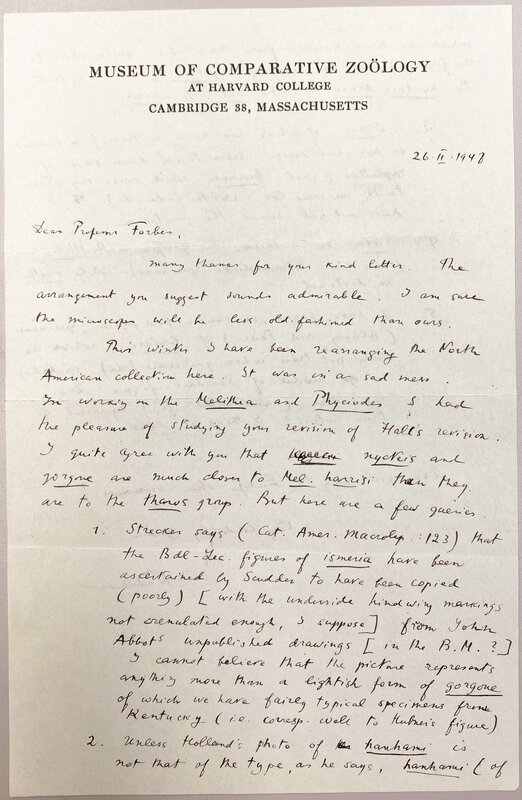 MUSEUM OF COMPARATIVE ZOÖLOGY
AT HARVARD COLLEGE
CAMBRIDGE 38, MASSACHUSETTS
26.II.1948
Dear Professor Forbes,
many thanks for your kind letter. The
arrangement you suggest sounds admirable. I am sure
the microscopes will be less old-fashioned than ours.
This winter I have been rearranging the North
American collection here. It was in a sad mess.
In working on the Melithea and Phyciodes I had
the pleasure of studying your revision of Hall's revision.
I quite agree with you that nycteis and
gorgone are much closer to Mel. harrisi than they
are to the tharos group. But here are a few queries.
1. Strecker says (Cat. Amer. Macrolep. :123) that
the Bdl-Lec. figures of ismeria have been
ascertained by Scudder to have been copied
(poorly) [with the underside hindwing markings
not crenulated enough, I suppose] from John
Abbot's unpublished drawings [in the B.M.?]
I cannot believe that the picture represents
anything more than a lightish form of gorgone
of which we have fairly typical specimens from
Kentucky (i.e. corresp. well to Hubner's figure)
2. Unless Holland's photo of hanhami is
not that of the type, as he says, hanhami (of